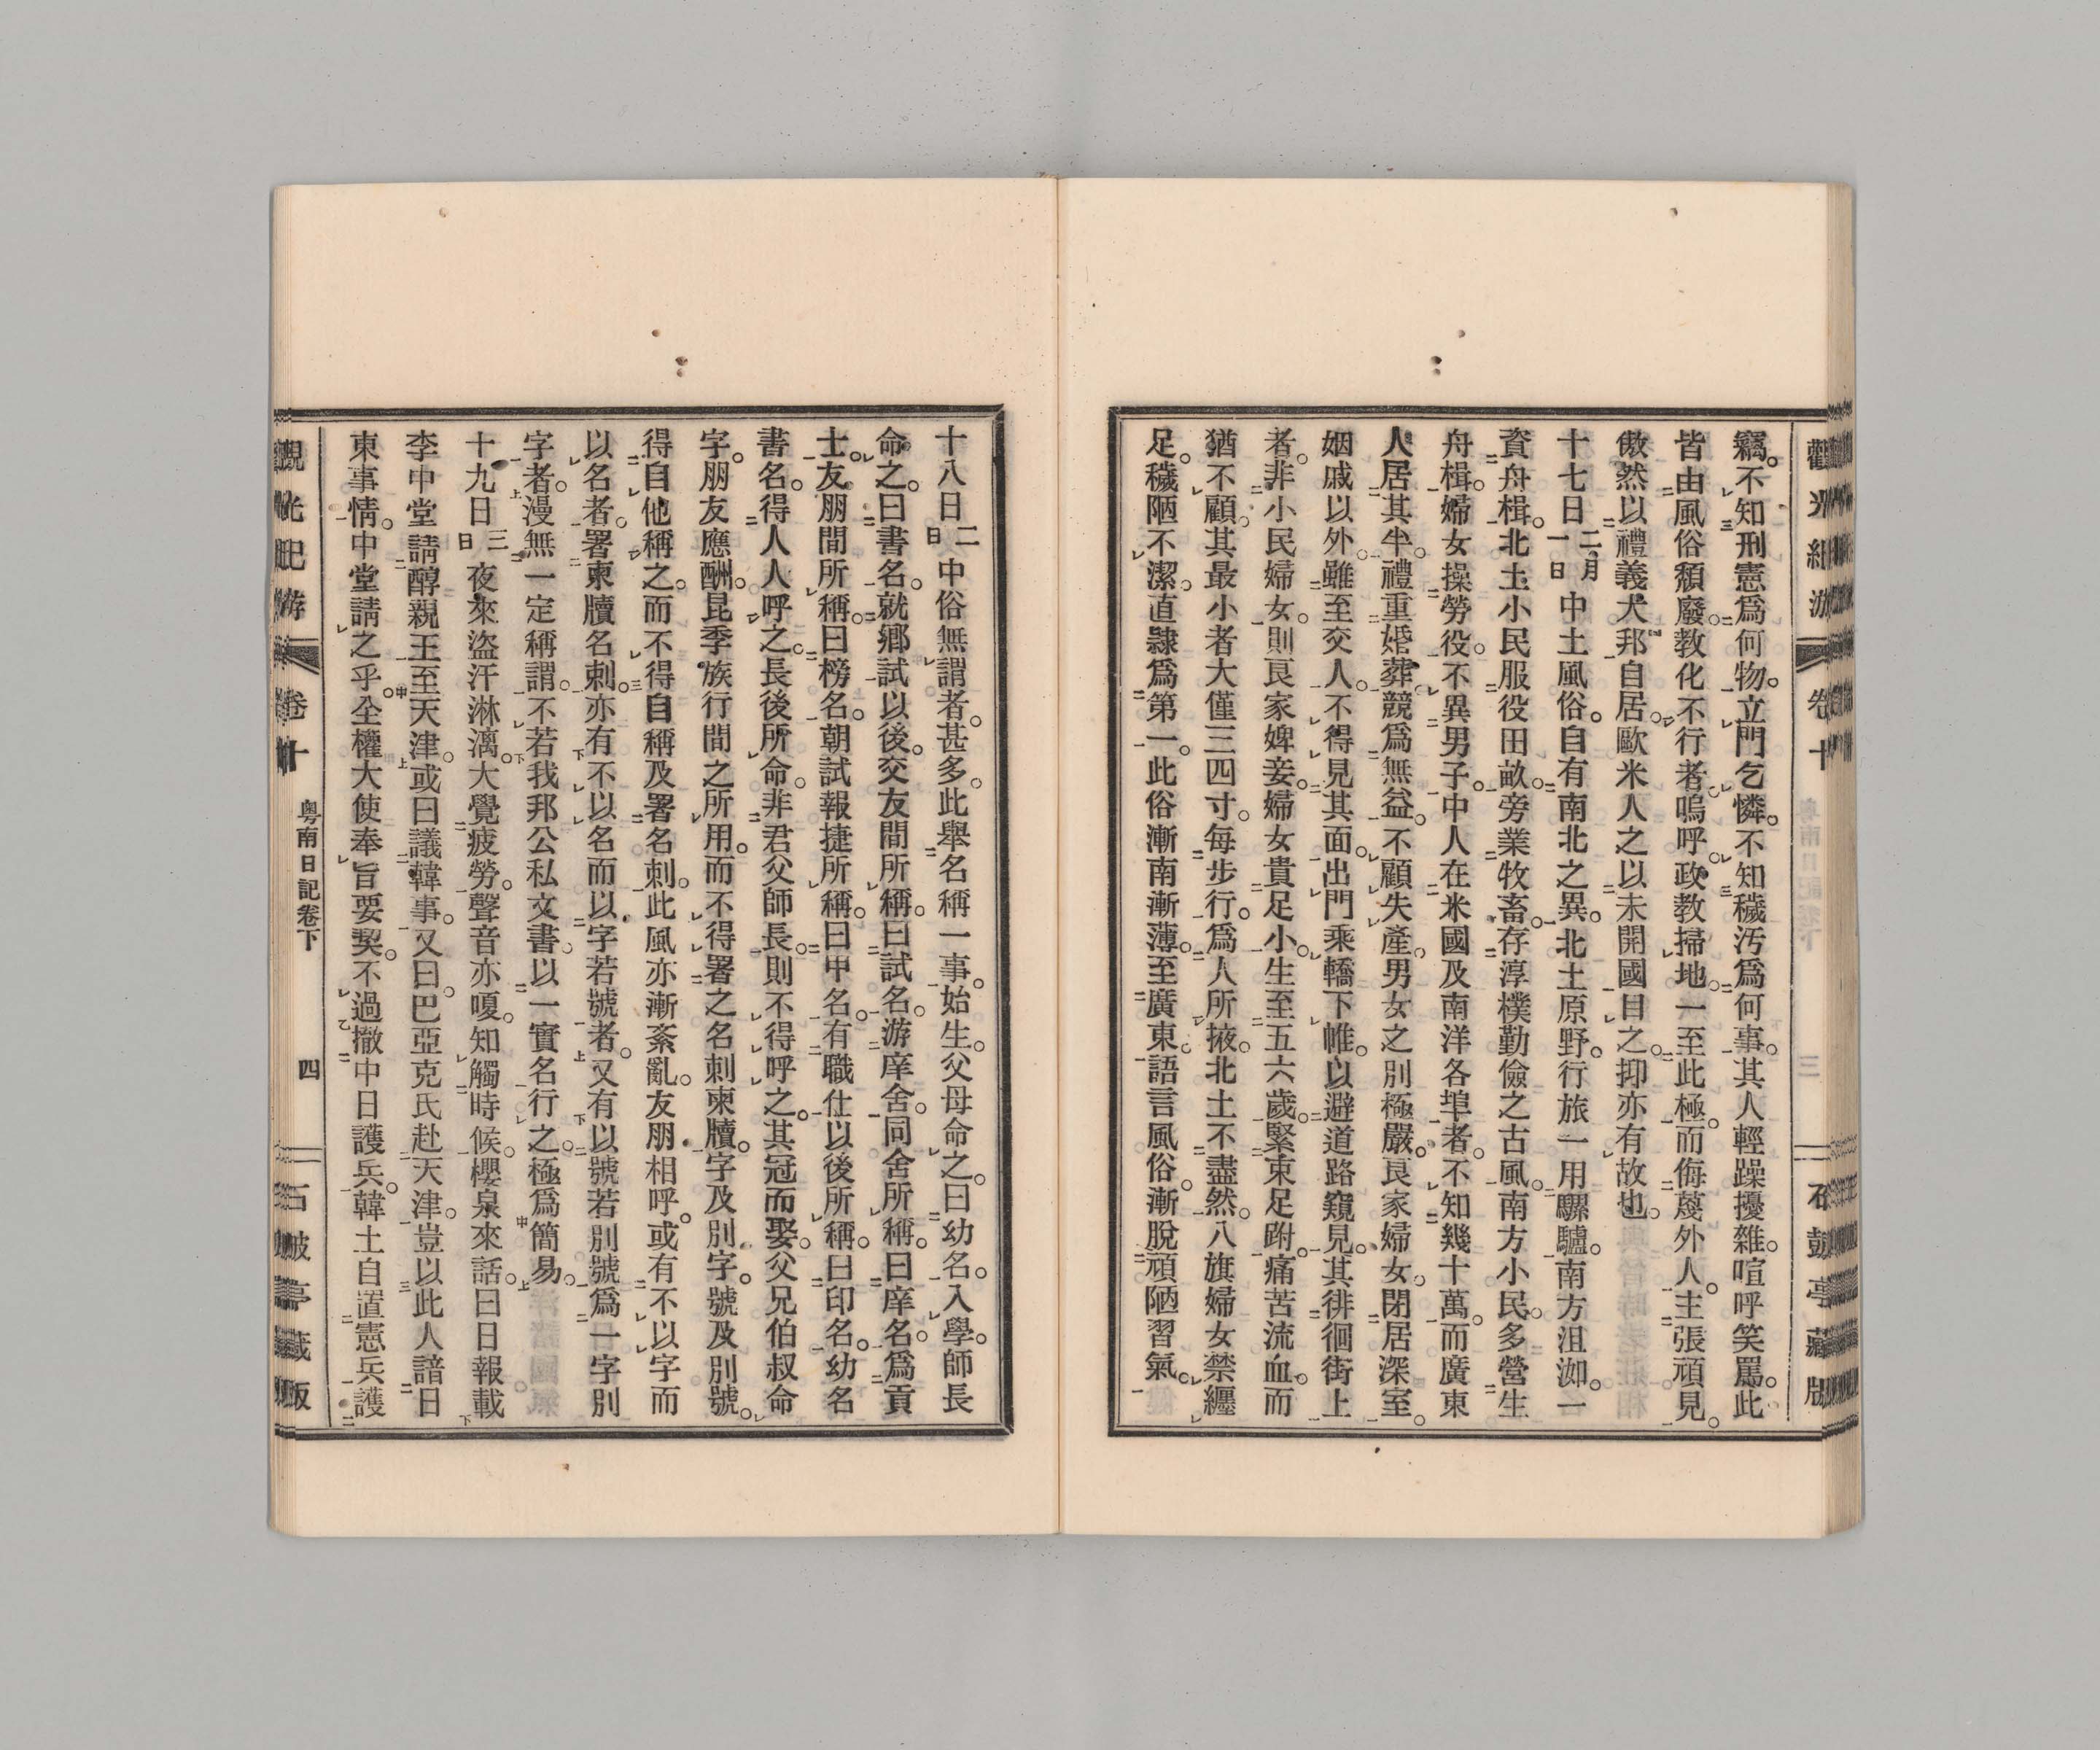 竊。不知刑憲爲何物。立門乞憐。不知穢汚爲何事。其人輕躁擾雜。喧呼笑罵。此
皆由風俗頽廢。教化不行者。嗚呼。政教掃地。一至此極。而侮蔑外人。主張頑見。
傲然以禮義大邦自居。歐米人之以未開國目之。抑亦有故也。
十七日二月一日中土風俗。自有南北之異。北土原野。行旅一用騾驢。南方沮洳。一
資舟楫。北土小民服役田畝。旁業牧畜。存淳樸勤儉之古風。南方小民。多營生
舟楫。婦女操勞役。不異男子。中人在米國及南洋各埠者。不知幾十萬。而廣東
人居其半。禮重婚葬。競爲無益。不顧失產。男女之別極嚴。良家婦女。閉居深室。
姻戚以外。雖至交人。不得見其面。出門乘轎下帷。以避道路窺見。其徘徊街上
者。非小民婦女。則良家婢妾。婦女貴足小。生至五六歲。緊束足跗。痛苦流血。而
猶不顧。其最小者大僅三四寸。每步行。爲人所掖。北土不盡然。八旗婦女禁纏
足。穢陋不潔。直隷爲第一。此俗漸南漸薄。至廣東。語言風俗。漸脫頑陋習氣。
十八日二日中俗無謂者。甚多。此舉名稱一事。始生。父母命之。曰幼名。入學。師長
命之。曰書名。就鄉試以後。交友間所稱。曰試名。游庠舍。同舍所稱。曰庠名。爲貢
士。友朋間所稱。曰榜名。朝試報捷所稱。曰甲名。有職仕以後所稱。曰印名。幼名
書名。得人人呼之。長後所命。非君父師長。則不得呼之。其冠而娶。父兄伯叔命
字。朋友應酬。昆季族行間之所用。而不得署之名刺柬牘。字及別字。號及別號。
得自他稱之。而不得自稱及署名刺。此風亦漸紊亂。友朋相呼。或有不以字而
以名者。署柬牘名刺。亦有不以名而以字若號者。又有以號若別號爲一字別
字者。漫無一定稱謂。不若我邦公私文書。以一實名行之。極爲簡易。
十九日三日夜來盜汗淋漓。大覺疲勞。聲音亦嗄。知觸時候。櫻泉來話。曰日報載
李中堂請醇親王至天津。或曰議韓事。又曰。巴亞克氏赴天津。豈以此人諳日
東事情。中堂請之乎。全權大使奉旨要契。不過撤中日護兵。韓土自置憲兵護
觀光紀游
卷十
粤南日記卷下
四